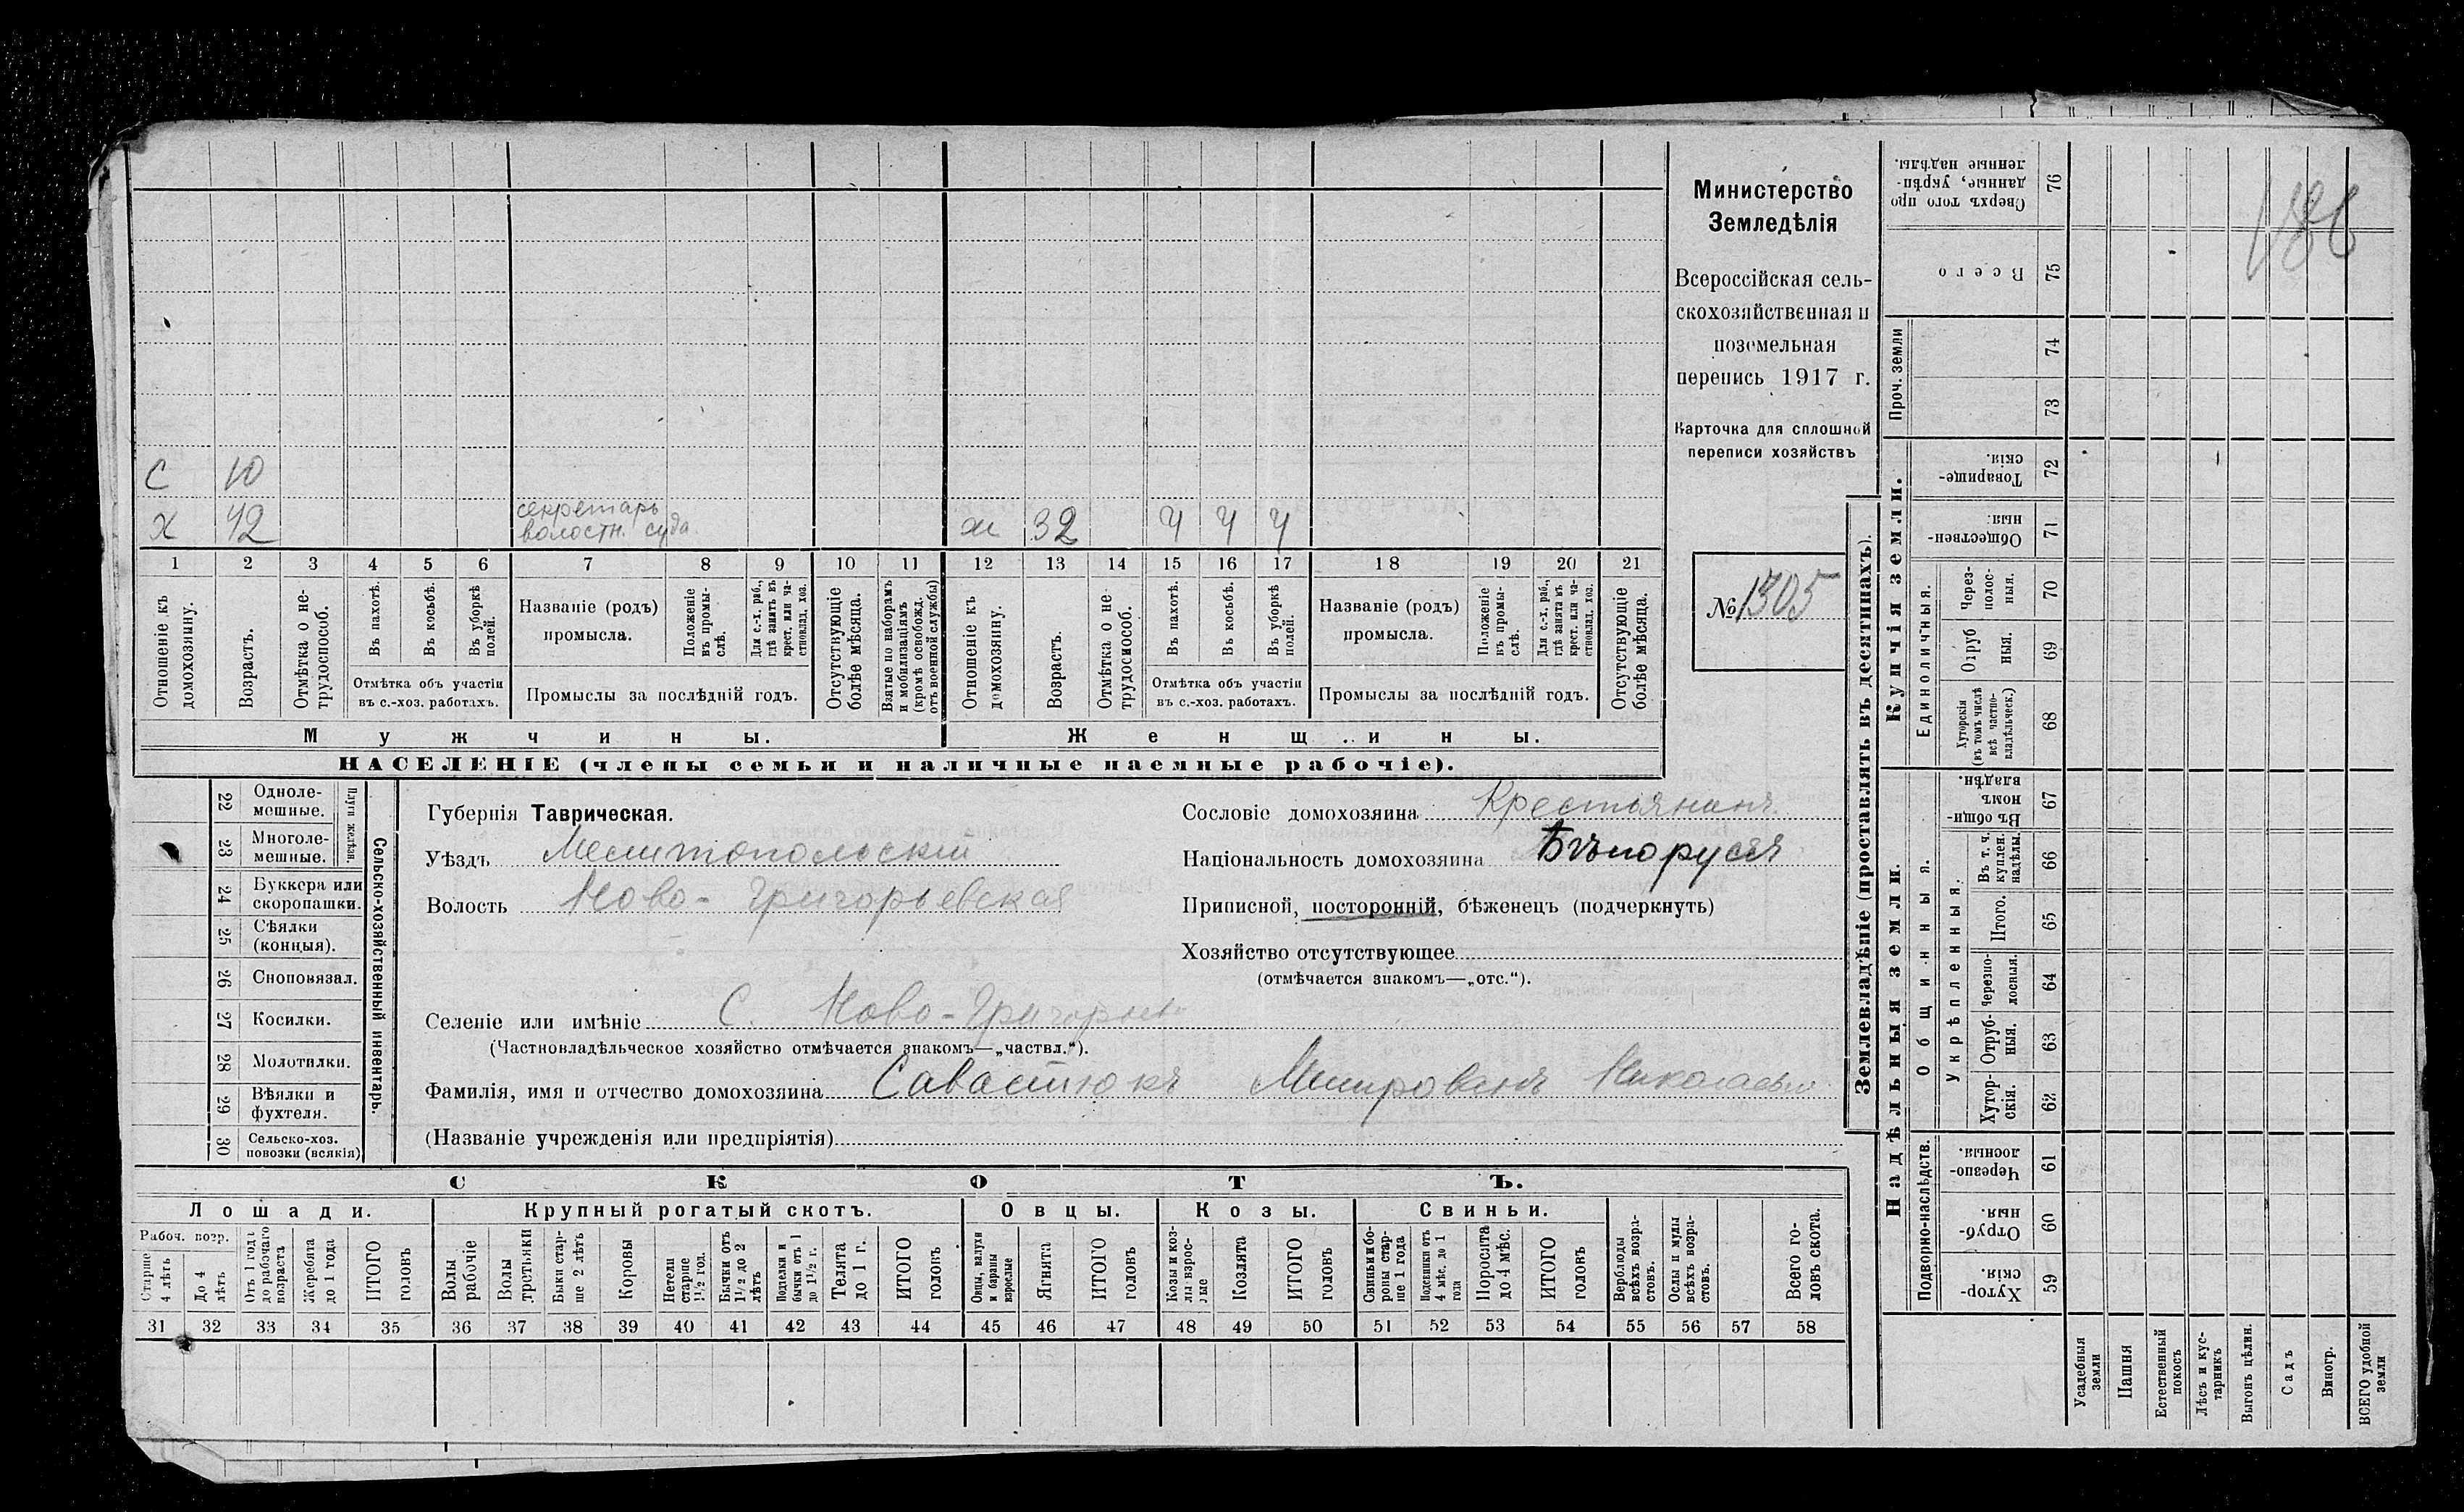 186
С 10
Х 42 секретарь волостн. суда. ж 32 ч ч ч
1 2 3 4 5 6 7 8 9 10 11 12 13 14 15 16 17 18 19 20 21
Отношеніе къ домохозяину.
Возрастъ.
Отмѣтка о не-трудоспособ.
Въ пахотѣ.
Въ косьбѣ.
Въ уборкѣ полей.
Отмѣтка объ участіи
въ с.-хоз. работахъ.
Названіе (родъ)
промысла.
Положеніе въ промы-слѣ.
Для с.-х. раб., гдѣ занятъ въ крест. или ча-стновлад. хоз.
Промыслы за послѣдній годъ.
Отсутствующіе болѣе мѣсяца.
Взятые по наборамъ и мобилизаціямъ (кромѣ освобожд. отъ военной службы)
Отношеніе къ домохозяину.
Возрастъ.
Отмѣтка о не-трудоспособ.
Въ пахотѣ.
Въ косьбѣ.
Въ уборкѣ полей.
Отмѣтка объ участіи
въ с.-хоз. работахъ.
Названіе (родъ)
промысла.
Положеніе въ промы-слѣ.
Для с.-х. раб., гдѣ занята въ крест. или ча-стновлад. хоз.
Промыслы за послѣдній годъ.
Отсутствующіе болѣе мѣсяца.
Мужчины.
Женщины.
НАСЕЛЕНІЕ (члены семьи и наличные наемные рабочіе).
Министерство
Земледѣлія
Всероссійская сель-
скохозяйственная и
поземельная
перепись 1917 г.
Карточка для сплошной
переписи хозяйствъ
№ 1305
22 Одноле-мешные.
23 Многоле-мешные.
Плуги желѣзн.
24 Буккера или скоропашки.
25 Сѣялки (конныя).
26 Сноповязал.
27 Косилки.
28 Молотилки.
29 Вѣялки и фухтели.
30 Сельско-хоз. повозки (всякія)
Сельско-хозяйственный инвентарь.
Губернія Таврическая.
Уѣздъ Мелитопольскій
Волость Ново-Григорьевская
Сословіе домохозяина Крестьянинъ.
Національность домохозяина Бѣлоруссъ
Приписной, посторонній, бѣженецъ (подчеркнуть)
Хозяйство отсутствующее
(отмѣчается знакомъ—„отс.“).
Селеніе или имѣніе С. Ново-Григорьев
(Частновладѣльческое хозяйство отмѣчается знакомъ—„частвл.“).
Фамилія, имя и отчество домохозяина Савастюкъ Николаев
(Названіе учрежденія или предпріятія)
СКОТЪ.
Лошади. Крупный рогатый скотъ. Овцы. Козы. Свиньи.
Рабоч. возр.
Старше 4 лѣтъ
До 4 лѣтъ
Отъ 1 года до рабочаго возраста
Жеребята до 1 года
ИТОГО головъ
Волы рабочіе
Волы третьяки
Быки стар-ше 2 лѣтъ
Коровы
Нетели старше 1½ год.
Бычки отъ 1½ до 2 лѣтъ
Подтелки и бычки отъ 1 до 1½ г.
Телята до 1 г.
ИТОГО головъ
Овцы, валухи и бараны взрослые
Ягнята
ИТОГО головъ
Козы и коз-лы взрос-лые
Козлята
ИТОГО головъ
Свиньи и бо-ровы стар-ше 1 года
Подсвинки отъ 4 мѣс. до 1 года
Поросята до 4 мѣс.
ИТОГО головъ
Верблюды всѣхъ возра-стовъ.
Ослы и мулы всѣхъ возра-стовъ.
Всего го-ловъ скота.
31 32 33 34 35 36 37 38 39 40 41 42 43 44 45 46 47 48 49 50 51 52 53 54 55 56 57 58
Землевладѣніе (проставлять въ десятинахъ).
Надѣльныя земли.
Купчія земли.
Проч. земли
Подворно-наслѣдств.
Общинныя.
Укрѣпленныя.
Единоличныя.
76 Сверхъ того про данные, укрѣп-ленные надѣлы.
75 Всего
74
73
72 Товарище-скія.
71 Обществен-ныя.
70 Через-полос-ныя.
69 Отруб ныя.
68 Хуторскія (въ томъ числѣ всѣ частно-владѣльческ.)
67 Въ общи-номъ владѣн.
66 Въ т. ч. куплен. надѣлы.
65 Итого.
64 Черезпо-лосныя.
63 Отруб-ныя.
62 Хутор-скія.
61 Черезпо-лосныя.
60 Отруб-ныя.
59 Хутор-скія.
Усадебныя земли
Пашня
Естественный покосъ
Лѣсъ и кус-тарникъ
Выгонъ цѣлин.
Садъ
Виногр.
ВСЕГО удобной земли